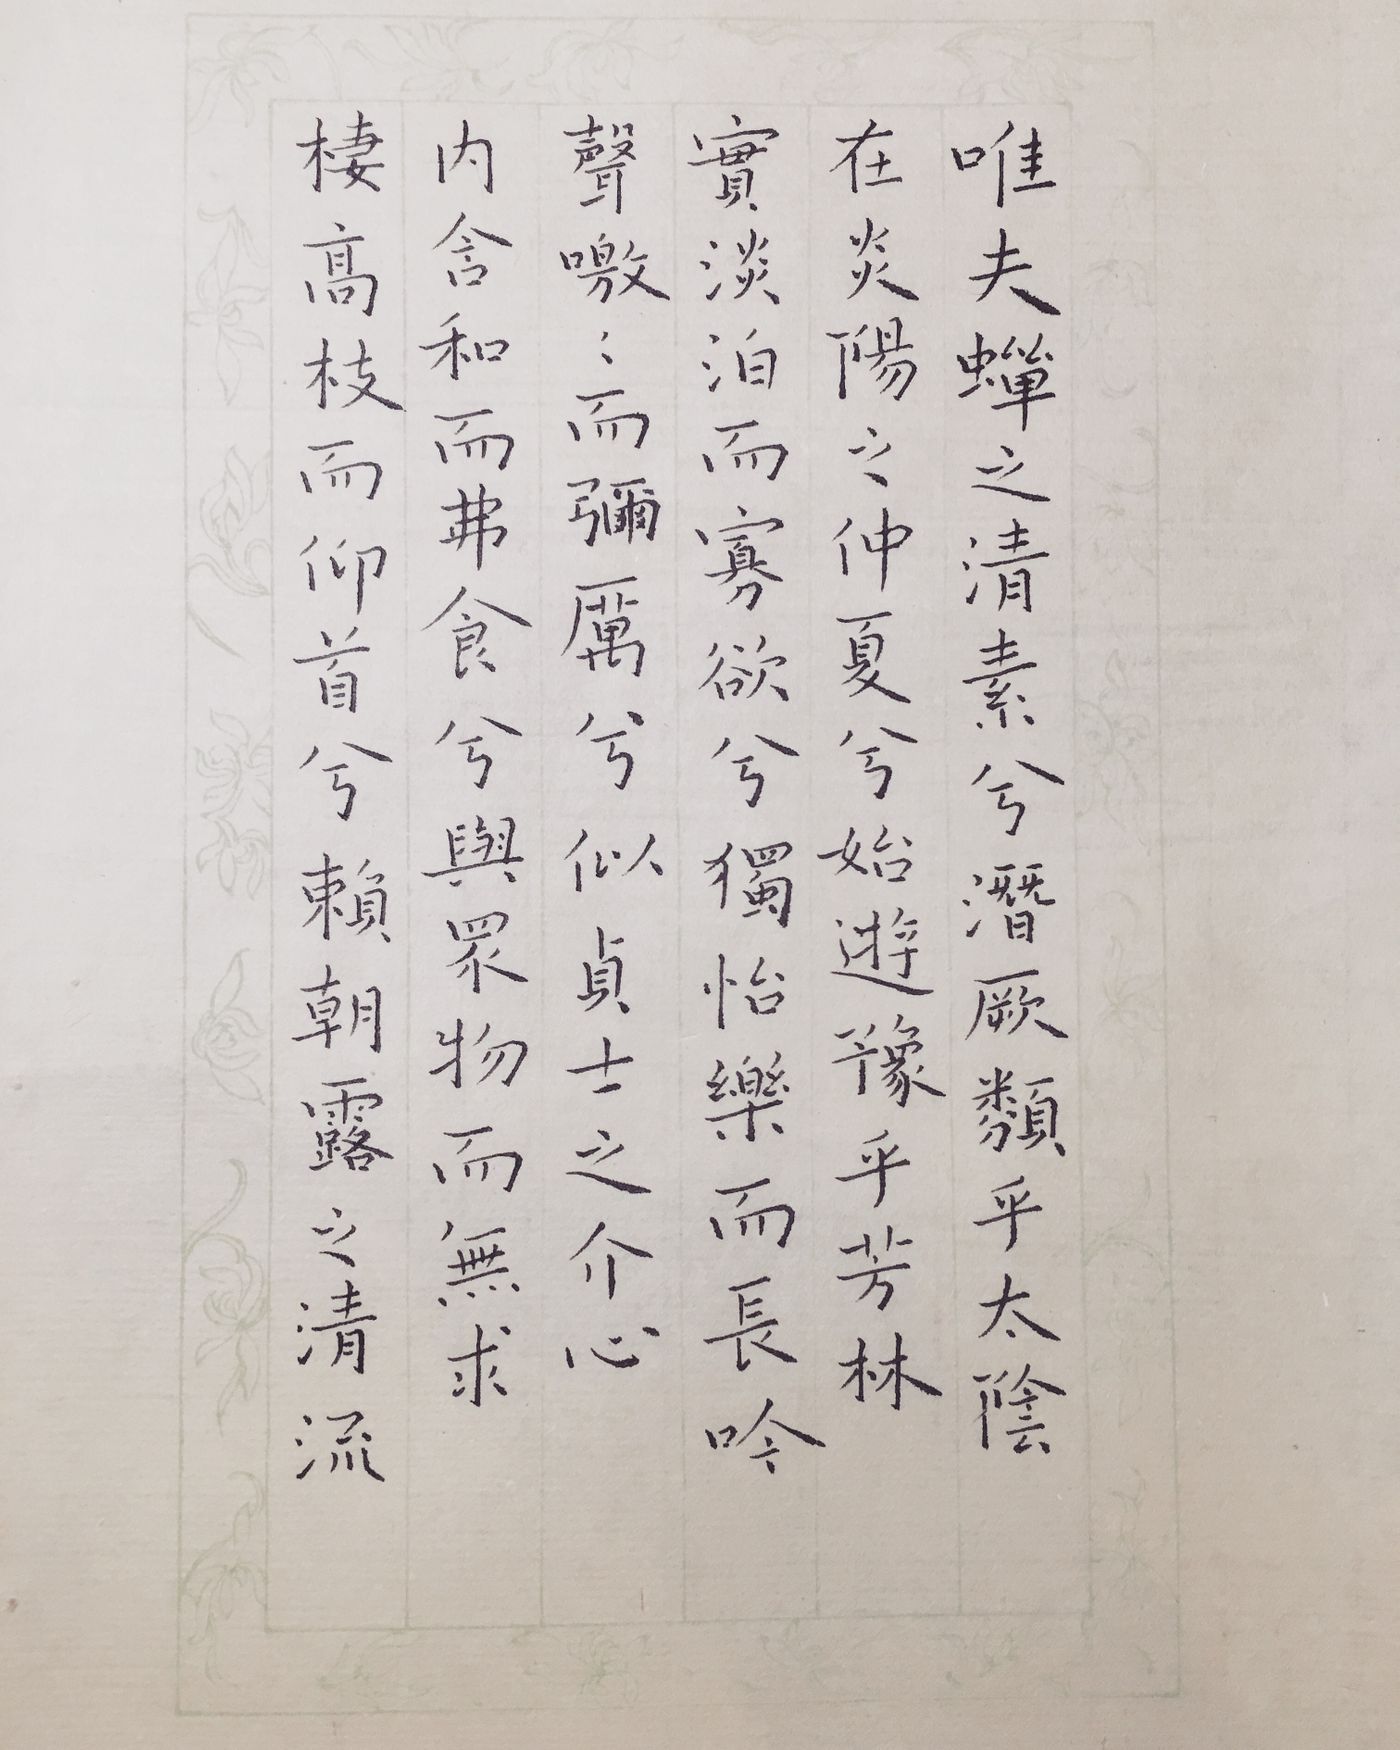 唯夫蟬之清素兮潛厥類乎太陰
在炎陽之仲夏兮始遊豫乎芳林
實淡泊而寡欲兮獨怡樂而長吟
聲噭〻而彌厲兮似貞士之介心
內含和而弗食兮與眾物而無求
棲高枝而仰首兮賴朝露之清流